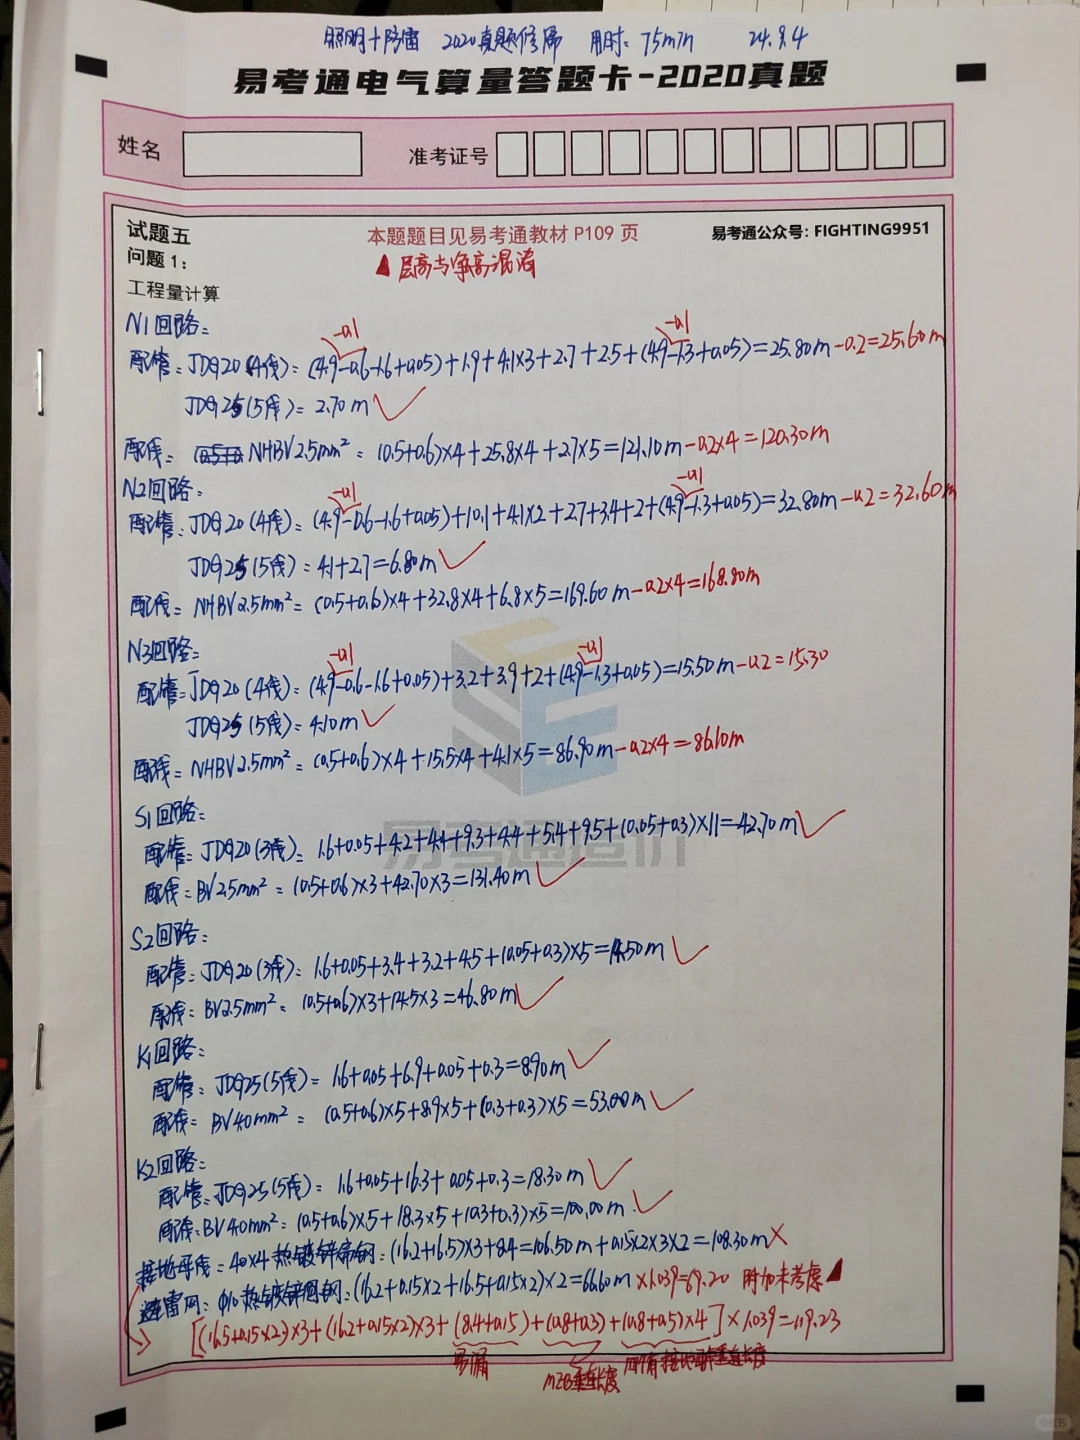 照明+防雷 2020真题修编 用时:75min 24.9.4
易考通电气算量答题卡-2020真题
姓名 准考证号
试题五 本题题目见易考通教材 P109 页 易考通公众号: FIGHTING9951
问题 1:
▲ 层高与净高混淆
工程量计算
N1回路:
-0.1 -0.1
配管: JDG20(4线): (4.9-0.6-1.6+0.05)+1.9+4.1×3+2.7+2.5+(4.9-1.3+0.05)=25.80m -0.2=25.60m
JDG25(5线)=2.70m ✓
配线: NHBV2.5mm²= (0.5+0.6)×4+25.8×4+2.7×5=121.10m -0.2×4=120.30m
N2回路: -0.1 -0.1
配管: JDG20(4线)=(4.9-0.6-1.6+0.05)+10.1+4.1×2+2.7+3.4+2+(4.9-1.3+0.05)=32.80m -0.2=32.60m
JDG25(5线)=4.1+2.7=6.80m ✓
配线= NHBV2.5mm²= (0.5+0.6)×4+32.8×4+6.8×5=169.60m -0.2×4=168.80m
N3回路: -0.1 -0.1
配管: JDG20(4线)=(4.9-0.6-1.6+0.05)+3.2+3.9+2+(4.9-1.3+0.05)=15.50m -0.2=15.30
JDG25(5线)=4.10m ✓
配线= NHBV2.5mm²= (0.5+0.6)×4+15.5×4+4.1×5=86.90m -0.2×4=86.10m
S1回路:
配管: JDG20(3线)= 1.6+0.05+4.2+4.4+9.3+4.4+5.4+9.5+(0.05+0.3)×11=42.70m ✓
配线: BV2.5mm²= (0.5+0.6)×3+42.70×3=131.40m ✓
S2回路:
配管: JDG20(3线): 1.6+0.05+3.4+3.2+4.5+(0.05+0.3)×5=14.50m ✓
配线: BV2.5mm²= (0.5+0.6)×3+14.5×3=46.80m ✓
K1回路:
配管: JDG25(5线)= 1.6+0.05+6.9+0.05+0.3=8.90m ✓
配线: BV4.0mm² = (0.5+0.6)×5+8.9×5+(0.3+0.3)×5=53.00m ✓
K2回路:
配管: JDG25(5线)= 1.6+0.05+16.3+0.05+0.3=18.30m ✓
配线: BV4.0mm²: (0.5+0.6)×5+18.3×5+(0.3+0.3)×5=100.00m ✓
接地母线: 40×4热镀锌扁钢: (16.2+16.5)×3+8.4=106.50m+0.15×2×3×2=108.30m ×
避雷网: Φ10热镀锌圆钢: (16.2+0.15×2+16.5+0.15×2)×2=66.60m ×1.039=69.20 附加未考虑▲
[(16.5+0.15×2)×3+(16.2+0.15×2)×3+(8.4+0.15)+(0.8+0.3)+(0.8+0.5)×4]×1.039=119.23
易漏 MEB垂直长度
易考通造价